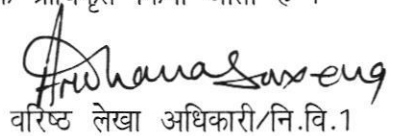 Archana Saxena
वरिष्ठ लेखा अधिकारी/नि.वि.1